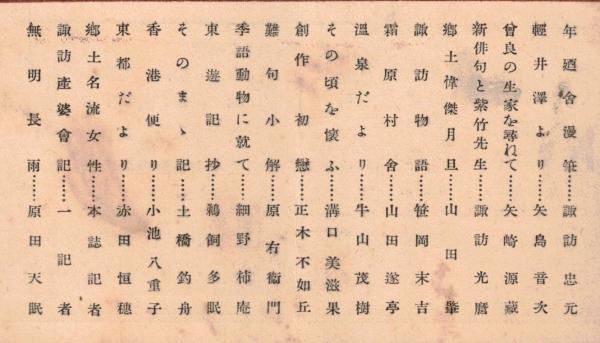 年廼舎漫筆……諏訪忠元
輕井澤より……矢島音次
曾良の生家を尋ねて……矢崎源藏
新俳句と紫竹先生……諏訪光麿
鄕土偉傑月旦……山田肇
諏訪物語……笹岡末吉
霜原村舍……山田遂亭
溫泉だより……牛山茂樹
その頃を懷ふ……溝口美滋果
創作初戀……正木不如丘
難句小解……原右衞門
季語動物に就て……細野柿庵
東遊記抄……鵜飼多眠
そのまゝ記……土橋釣舟
香港便り……小池八重子
東都だより……赤田恒穗
鄕土名流女性……本誌記者
諏訪產婆會記……一記者
無明長雨……原田天眠